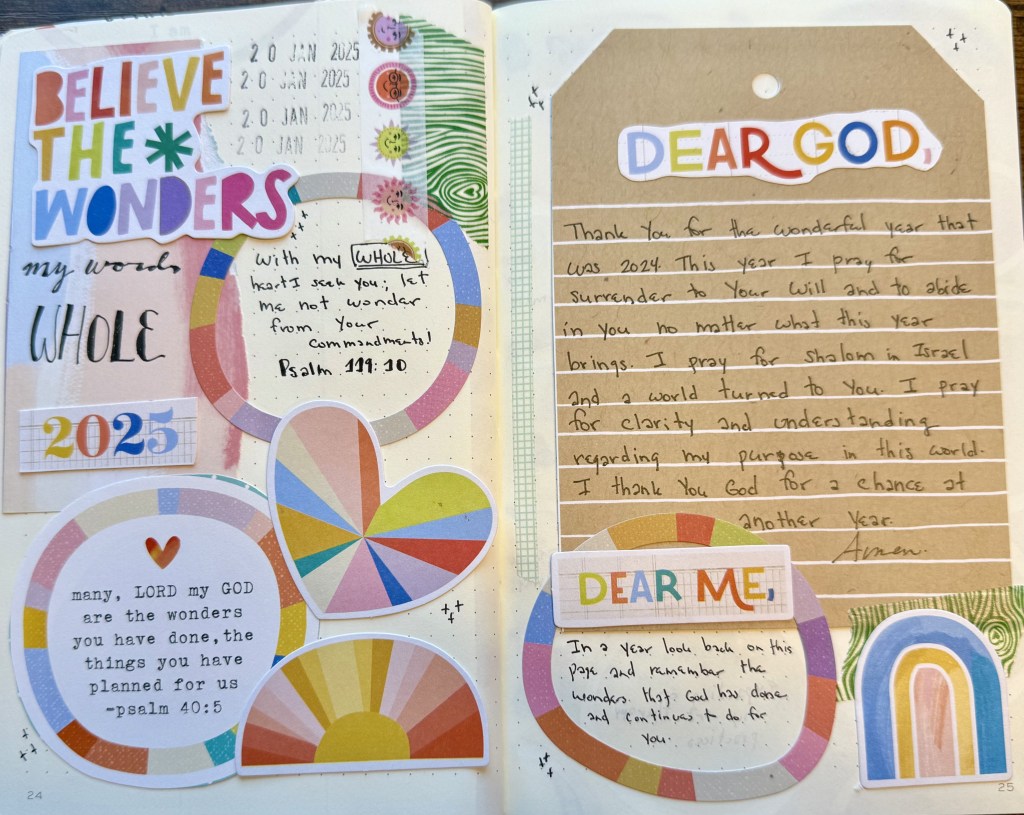 BELIEVE
THE
WONDERS
20 JAN 2025
20 JAN 2025
20 JAN 2025
20 JAN 2025
my word
WHOLE
2025
With my WHOLE
heart I seek you; let
me not wonder
from Your
commandments!
Psalm 119:10
many, LORD my GOD
are the wonders
you have done, the
things you have
planned for us
-psalm 40:5
24
DEAR GOD,
Thank You for the wonderful year that
was 2024. This year I pray for
surrender to Your will and to abide
in you no matter what this year
brings. I pray for shalom in Israel
and a world turned to You. I pray
for clarity and understanding
regarding my purpose in this world.
I thank You God for a chance at
another year.
Amen.
DEAR ME,
In a year look back on this
page and remember the
wonders that God has done
and continues to do for
you.
25